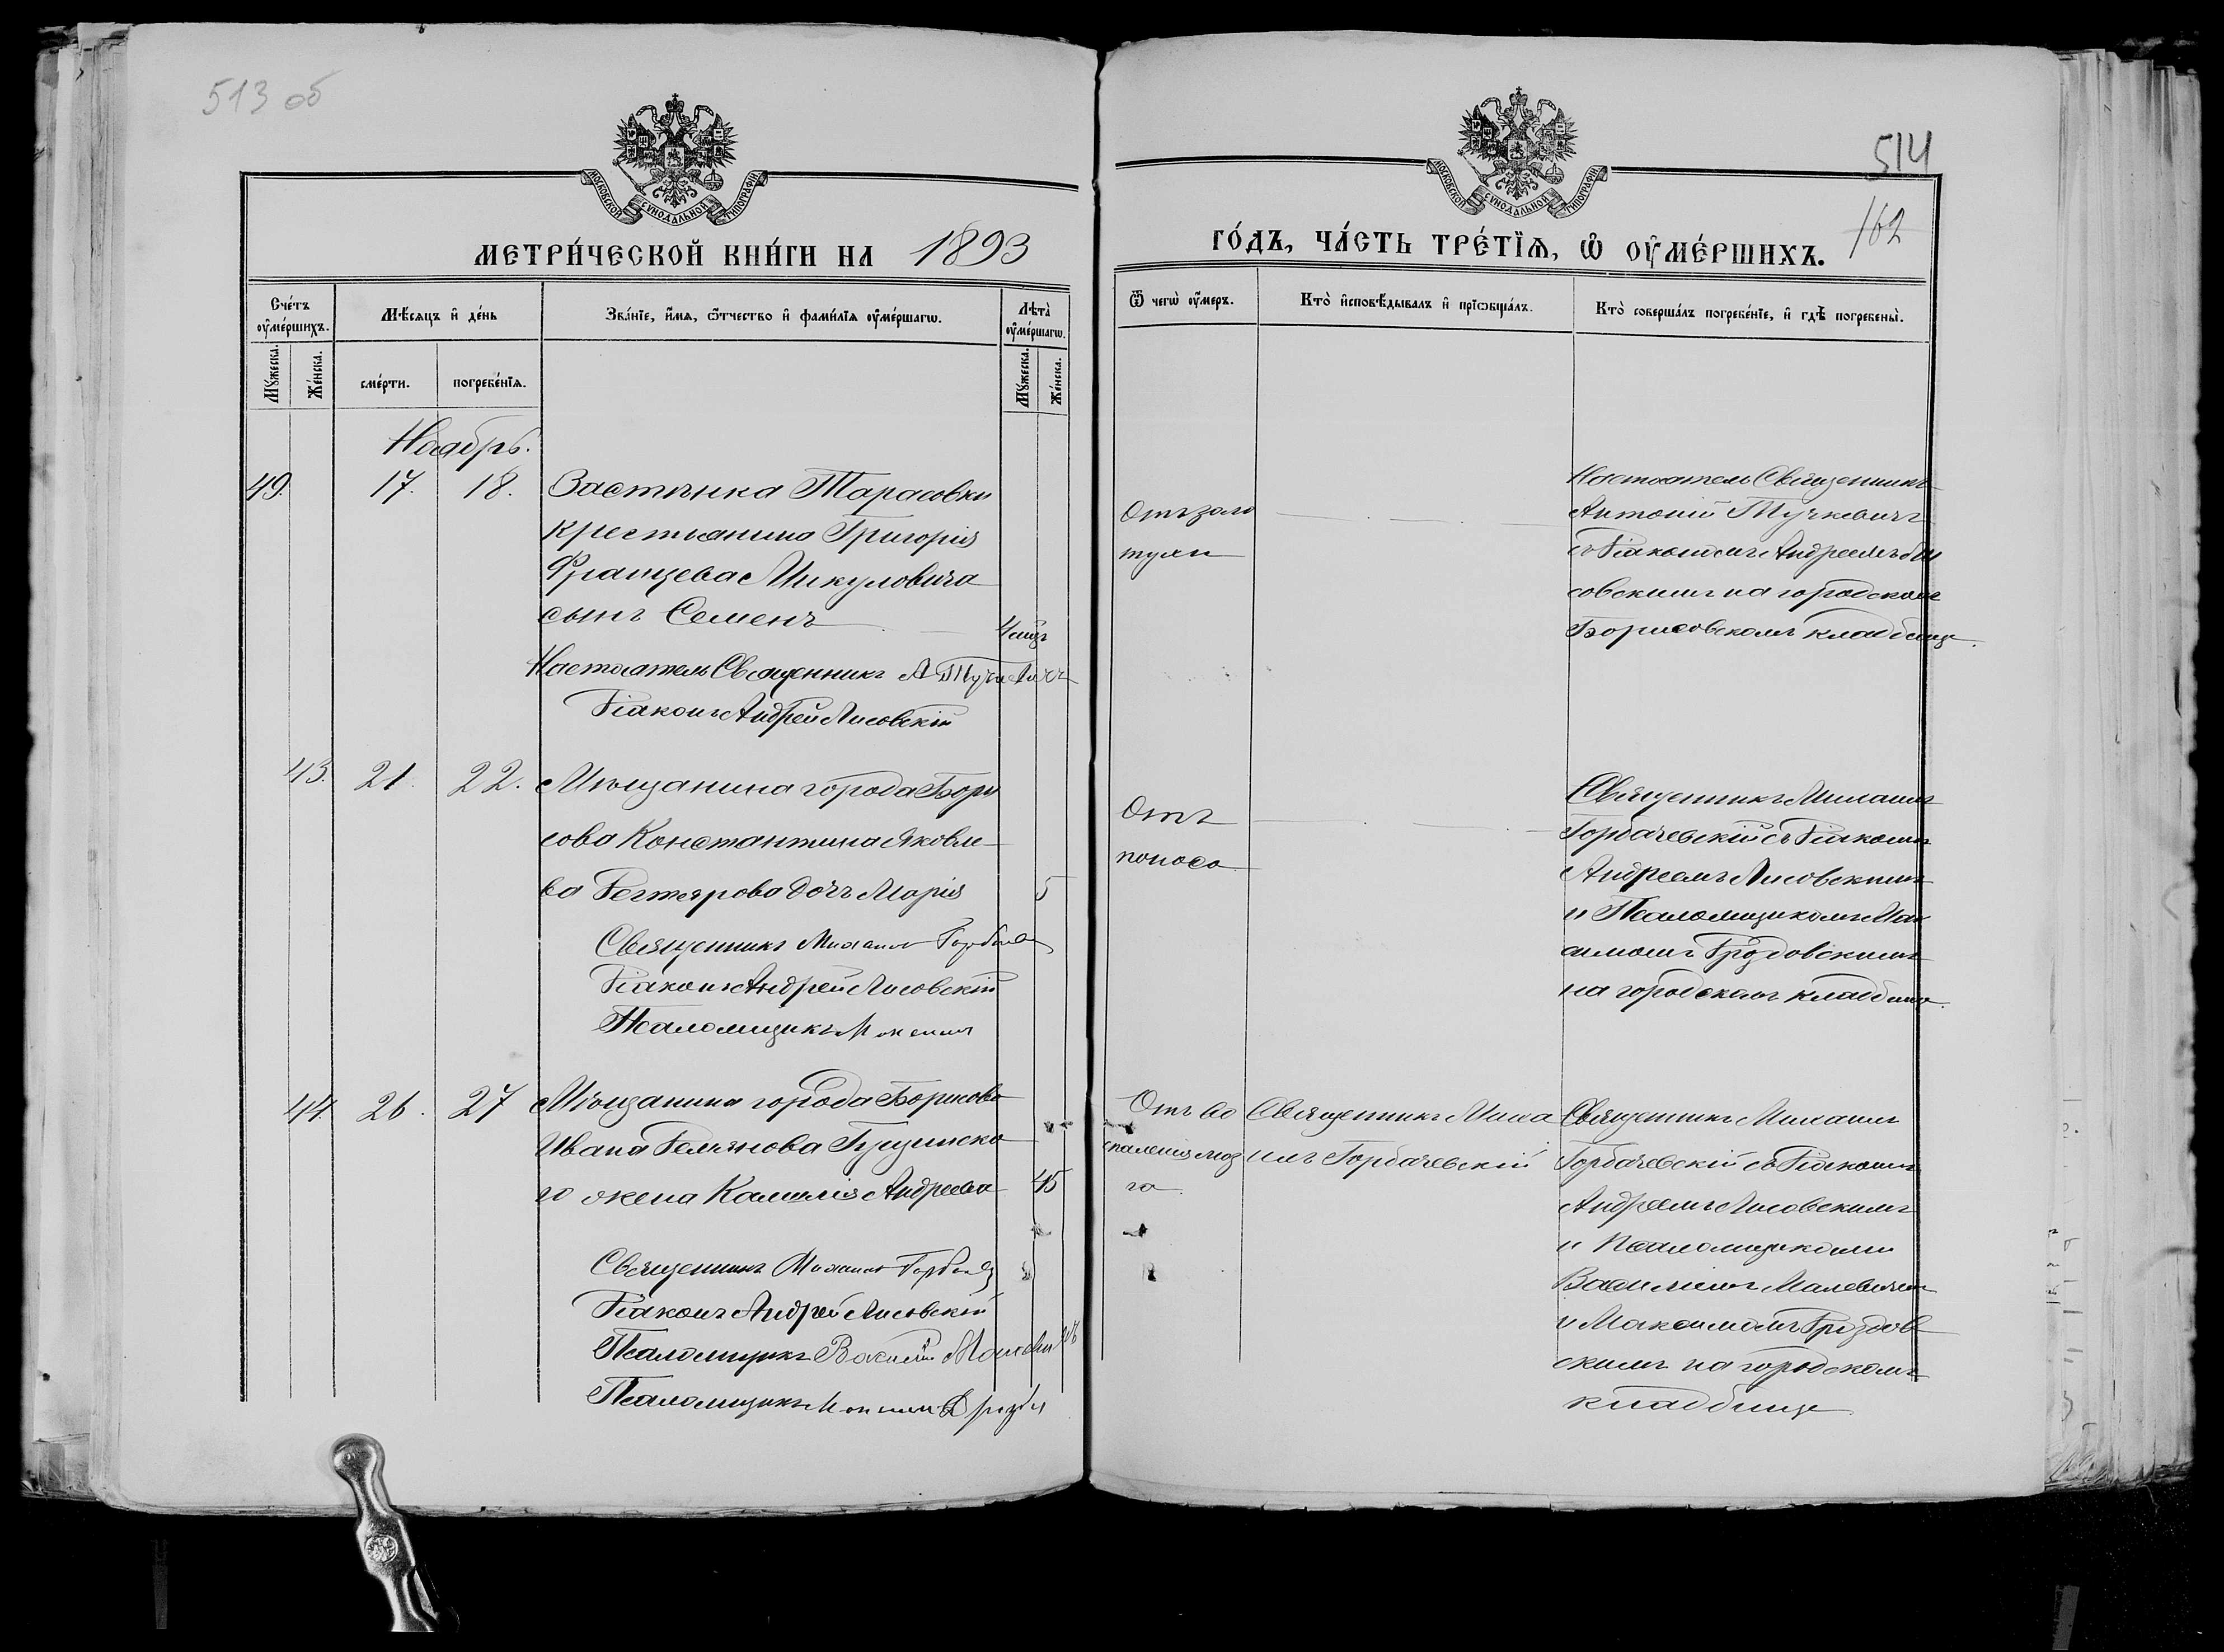 513 об
МОСКОВСКОЙ СѴНОДАЛЬНОЙ ТИПОГРАФІИ
МЕТРИ́ЧЕСКОЙ КНИ́ГИ НА 1893
Сче́тъ ᲂу҆ме́ршихъ.
Мѣ́сяцъ и҆ де́нь
Зва́нїе, и҆́мѧ, ѻ҆́тчество и҆ фами́лїѧ ᲂу҆ме́ршагѡ.
Лѣта̀ ᲂу҆ме́ршагѡ.
Мꙋ́жеска.
Же́нска.
сме́рти.
погребе́нїѧ.
Мꙋ́жеска.
Же́нска.
Ноябрь.
49. 17. 18. Застѣнка Тарасовки
крестьянина Григорія
Францева Микуловича
сынъ Семенъ 4 мѣс
Настоятель Священникъ А Тучкевичъ
Діаконъ Андрей Лисовскій
43. 21. 22. Мѣщанина города Бори
сова Константина Яковле
ва дочь Марія 5
Священникъ Михаилъ
Діаконъ Андрей Лисовскій
Псаломщикъ Максимъ
44. 26. 27 Мѣщанина города Борисова
Ивана Демьянова
го жена Андреева 45
Священникъ Михаилъ
Діаконъ Андрей Лисовскій
Псаломщикъ Василій Малевичъ
Псаломщикъ Максимъ
514
162
МОСКОВСКОЙ СѴНОДАЛЬНОЙ ТИПОГРАФІИ
ГО́ДЪ, ЧА́СТЬ ТРЕ́ТЇѦ, Ѡ҆ ОУ҆МЕ́РШИХЪ.
Ѿ чегѡ̀ ᲂу҆́меръ.
Кто̀ и҆сповѣ́дывалъ и҆ прїѡбща́лъ.
Кто̀ соверша́лъ погребе́нїе, и҆ гдѣ̀ погребены̀.
Отъ золо
тухи
Настоятель Священникъ
Антоній Тучкевичъ
съ Діакономъ Андреемъ Ли
совскимъ на городскомъ
Борисовскомъ кладбищѣ.
Отъ
поноса
Священникъ Михаилъ
Горбачевскій съ Діакономъ
Андреемъ Лисовскимъ
и Псаломщикомъ Мак
симомъ Гроздовскимъ
на городскомъ кладбищѣ.
Отъ во
спаленія моз
га.
Священникъ Миха
илъ Горбачевскій
Священникъ Михаилъ
Горбачевскій съ Діакономъ
Андреемъ Лисовскимъ
и Псаломщиками
Василіемъ Малевичемъ
и Максимомъ Гроздов
скимъ на городскомъ
кладбищѣ